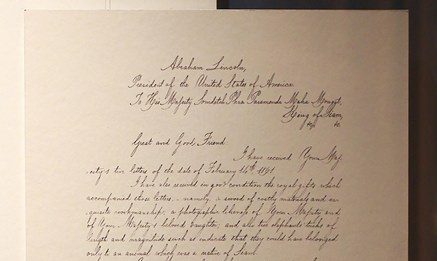 Abraham Lincoln,
President of the United States of America
To His Majesty Somdetch Phra Paramende Maha Mongut,
King of Siam,
&c &c
Great and Good Friend:
I have received Your Maj
esty's two letters of the date of February 14th 1861
I have also received in good condition the royal gifts which
accompanied those letters, namely, a sword of costly materials and ex
quisite workmanship; a photographic likeness of Your Majesty and
of Your Majesty's beloved daughter; and also two elephants' tusks of
length and magnitude such as indicate that they could have belonged
only to an animal which was a native of Siam.